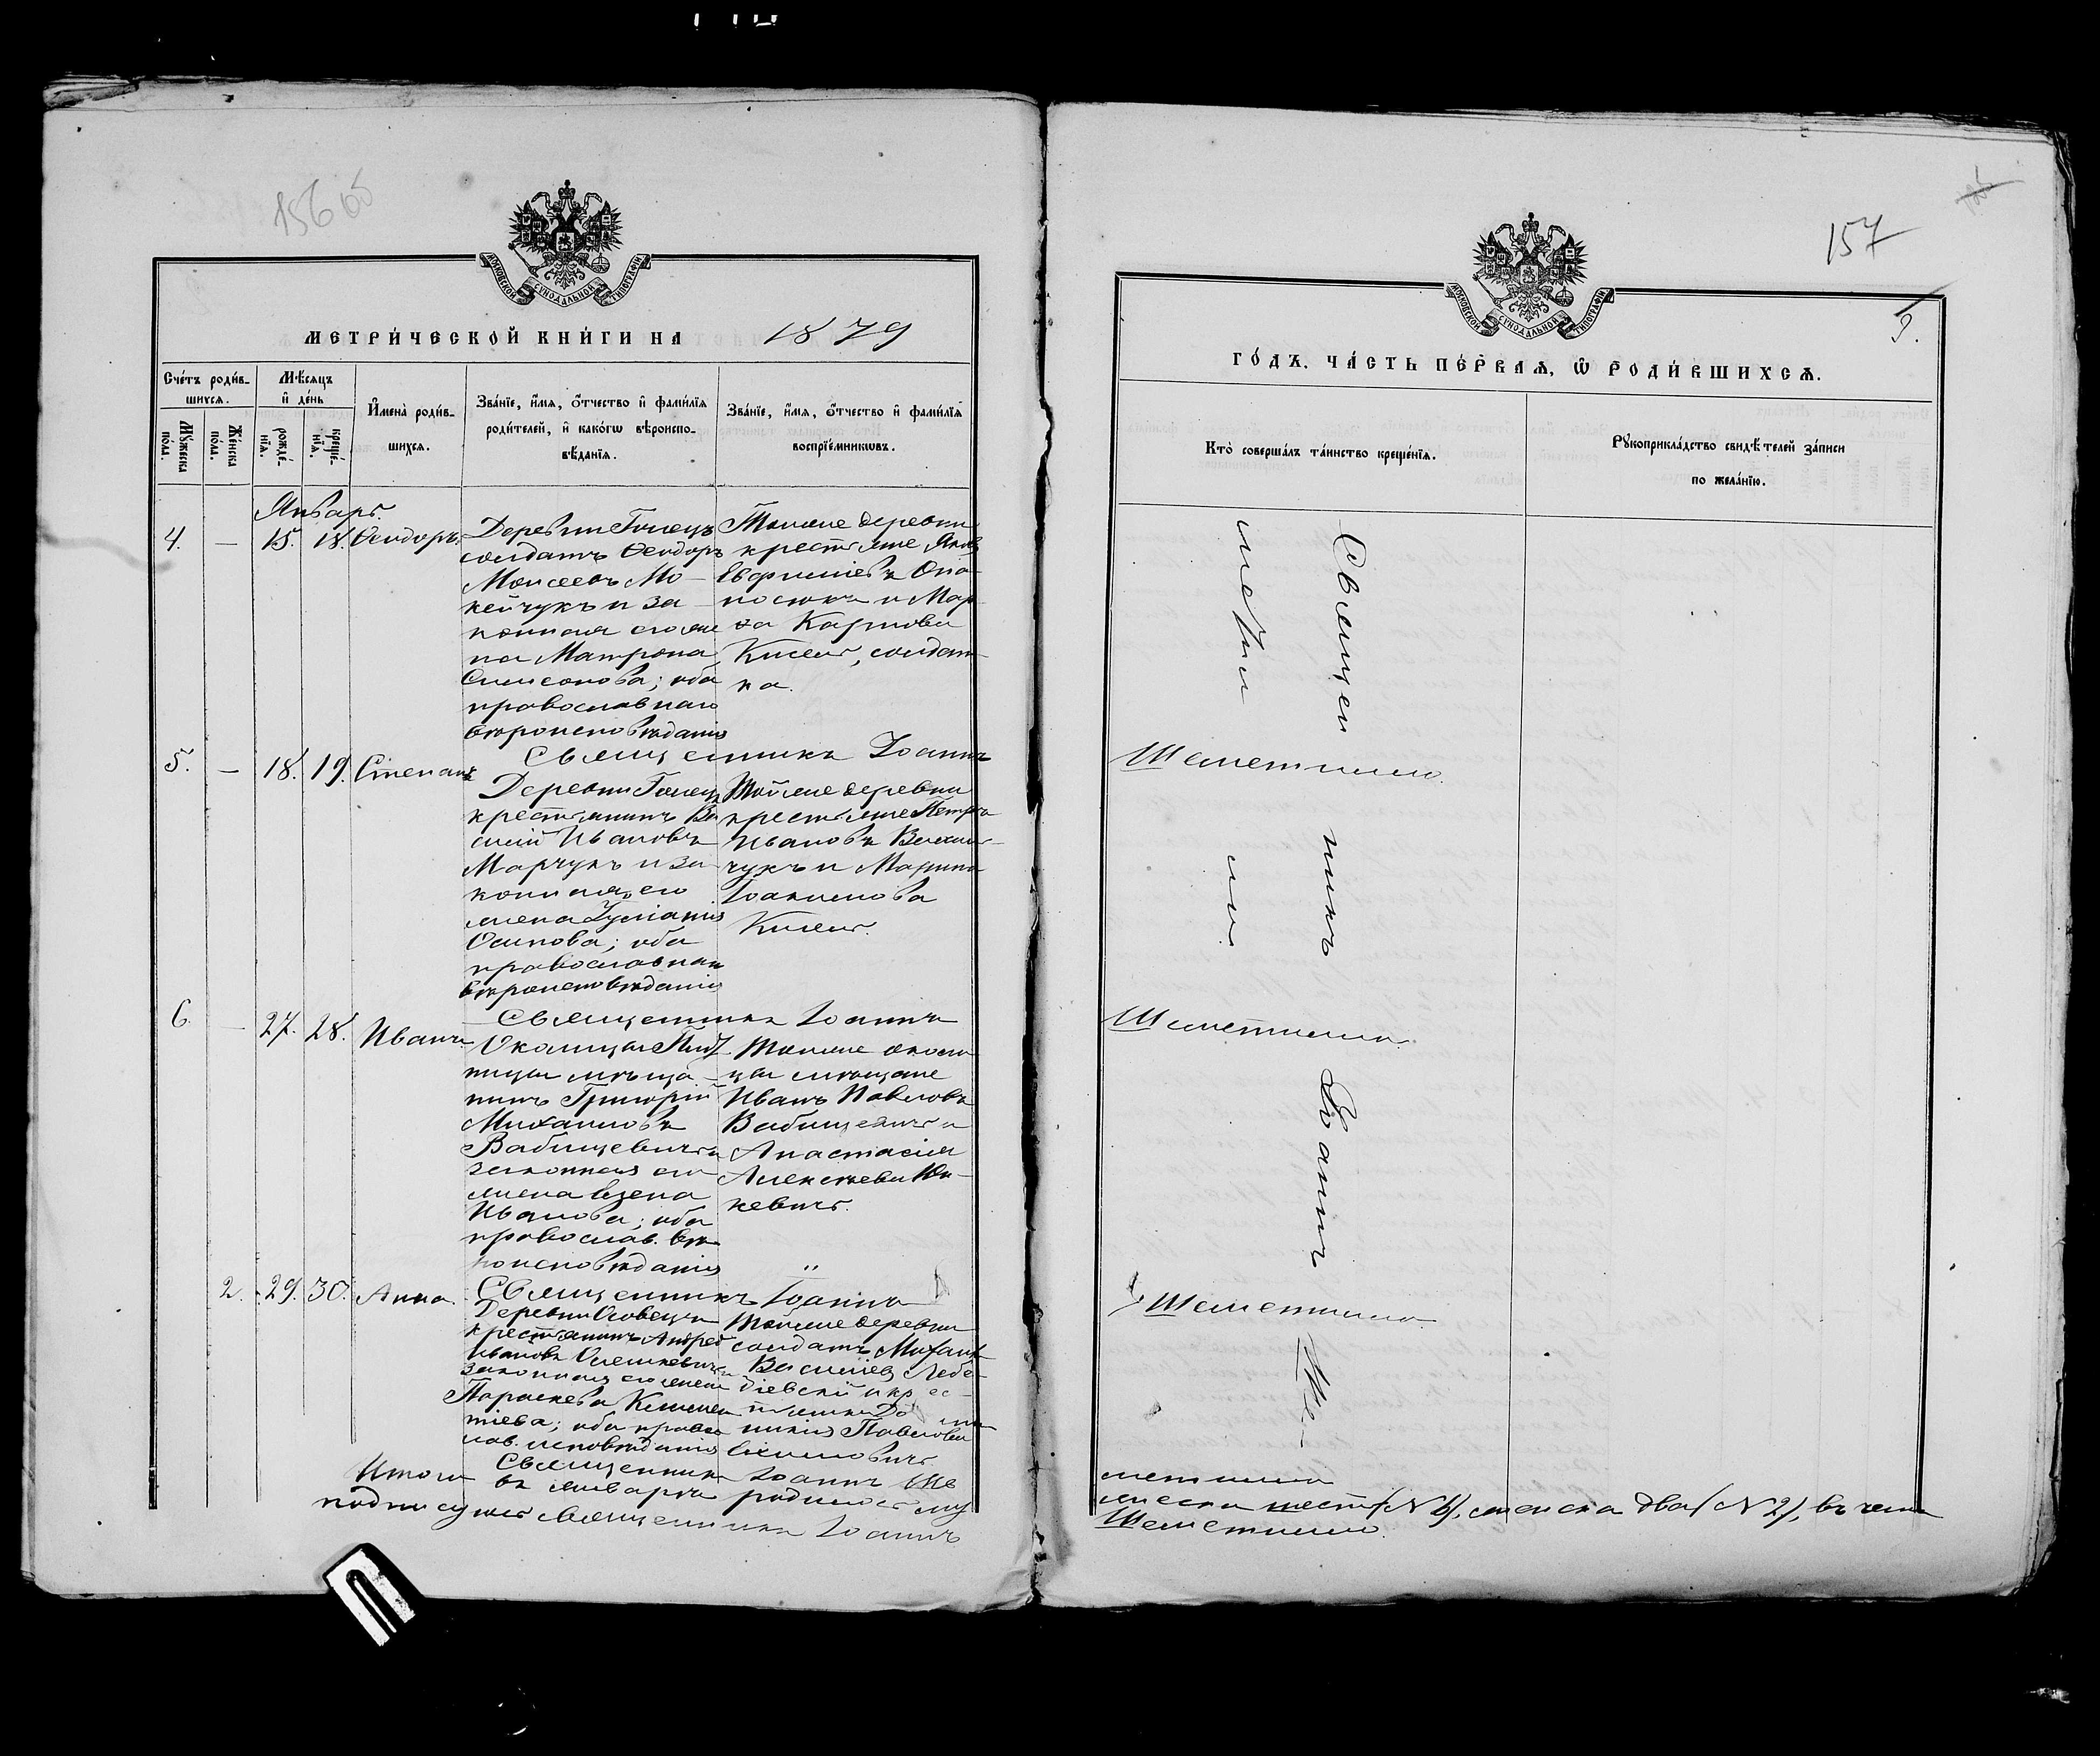 156 об
МОСКОВСКОЙ СѴНОДАЛЬНОЙ ТИПОГРАФІИ
МЕТРИ́ЧЕСКОЙ КНИ́ГИ НА 1879
Сче́тъ роди́в-
шихсѧ.
Мѣ́сяцъ
и҆ де́нь
Мꙋ́жеска
по́ла.
Же́нска
по́ла.
рожде́-
нїѧ.
креще́-
нїѧ.
И҆мена̀ роди́в-
шихсѧ.
Зва́нїе, и҆́мѧ, ѻ҆́тчество и҆ фами́лїѧ
роди́телей, и҆ како́гѡ вѣроиспо-
вѣ́данїѧ.
Зва́нїе, и҆́мѧ, ѻ҆́тчество и҆ фами́лїѧ
воспрїе́мникѡвъ.
Январь.
4. — 15. 18. Ѳеодоръ.
Деревни
солдатъ Ѳеодоръ
Моисеевъ Мо-
кейчукъ и за-
конная его же-
на Матрона
Симеонова; оба
православнаго
вѣроисповѣданія
Тойже деревни
крестьяне Яковъ
Евфиміевъ Опа-
носюкъ и Мар-
ѳа Карпова
Кисель, солдат-
ка.
Священникъ Іоаннъ
5. — 18. 19. Стефанъ
Деревни
крестьянинъ Ва
силій Ивановъ
Марчукъ и за-
конная его
жена Іуліанія
Осипова; оба
православнаго
вѣроисповѣданія
Тойже деревни
крестьяне Петръ
Ивановъ
чукъ и Марина
Іоакимова
Кисель.
Священникъ Іоаннъ
6. — 27. 28. Иванъ.
Околицы
ницы мѣща-
нинъ Григорій
Михаиловъ
Вабищевичъ и
законная его
жена Елена
Иванова; оба
православ. вѣ-
роисповѣданія
Тойже околи
цы мѣщане
Иванъ Павловъ
Вабищевичъ и
Анастасія
Алексѣева Юх-
невичъ.
Священникъ Іоаннъ
2. 29. 30. Анна.
Деревни Осовецъ
крестьянинъ Андрей
Ивановъ Олешкевичъ и
законная его жена
Параскева Климен
тіева; оба правос
лав. исповѣданія
Тойже деревни
солдатъ Михаилъ
Василіевъ Лебе-
діевскій и крес-
тьянка До
никія Павлова
Священникъ Іоаннъ Ше
Итого въ январѣ родилось му
подписуюсь священникъ Іоаннъ
157
9.
МОСКОВСКОЙ СѴНОДАЛЬНОЙ ТИПОГРАФІИ
ГО́ДЪ. ЧА́СТЬ ПЕ́РВАѦ, Ѡ҆ РОДИ́ВШИХСѦ.
Кто̀ соверша́лъ та́инство креще́нїѧ.
Рꙋкоприкла́дство свидѣ́телей за́писи
по жела́нїю.
Священникъ Іоаннъ Ше-
метилло
Шеметилло.
Шеметилло.
Шеметилло.
метилло
жеска шесть (№ 6), женска два (№ 2), въ чемъ
Шеметилло.